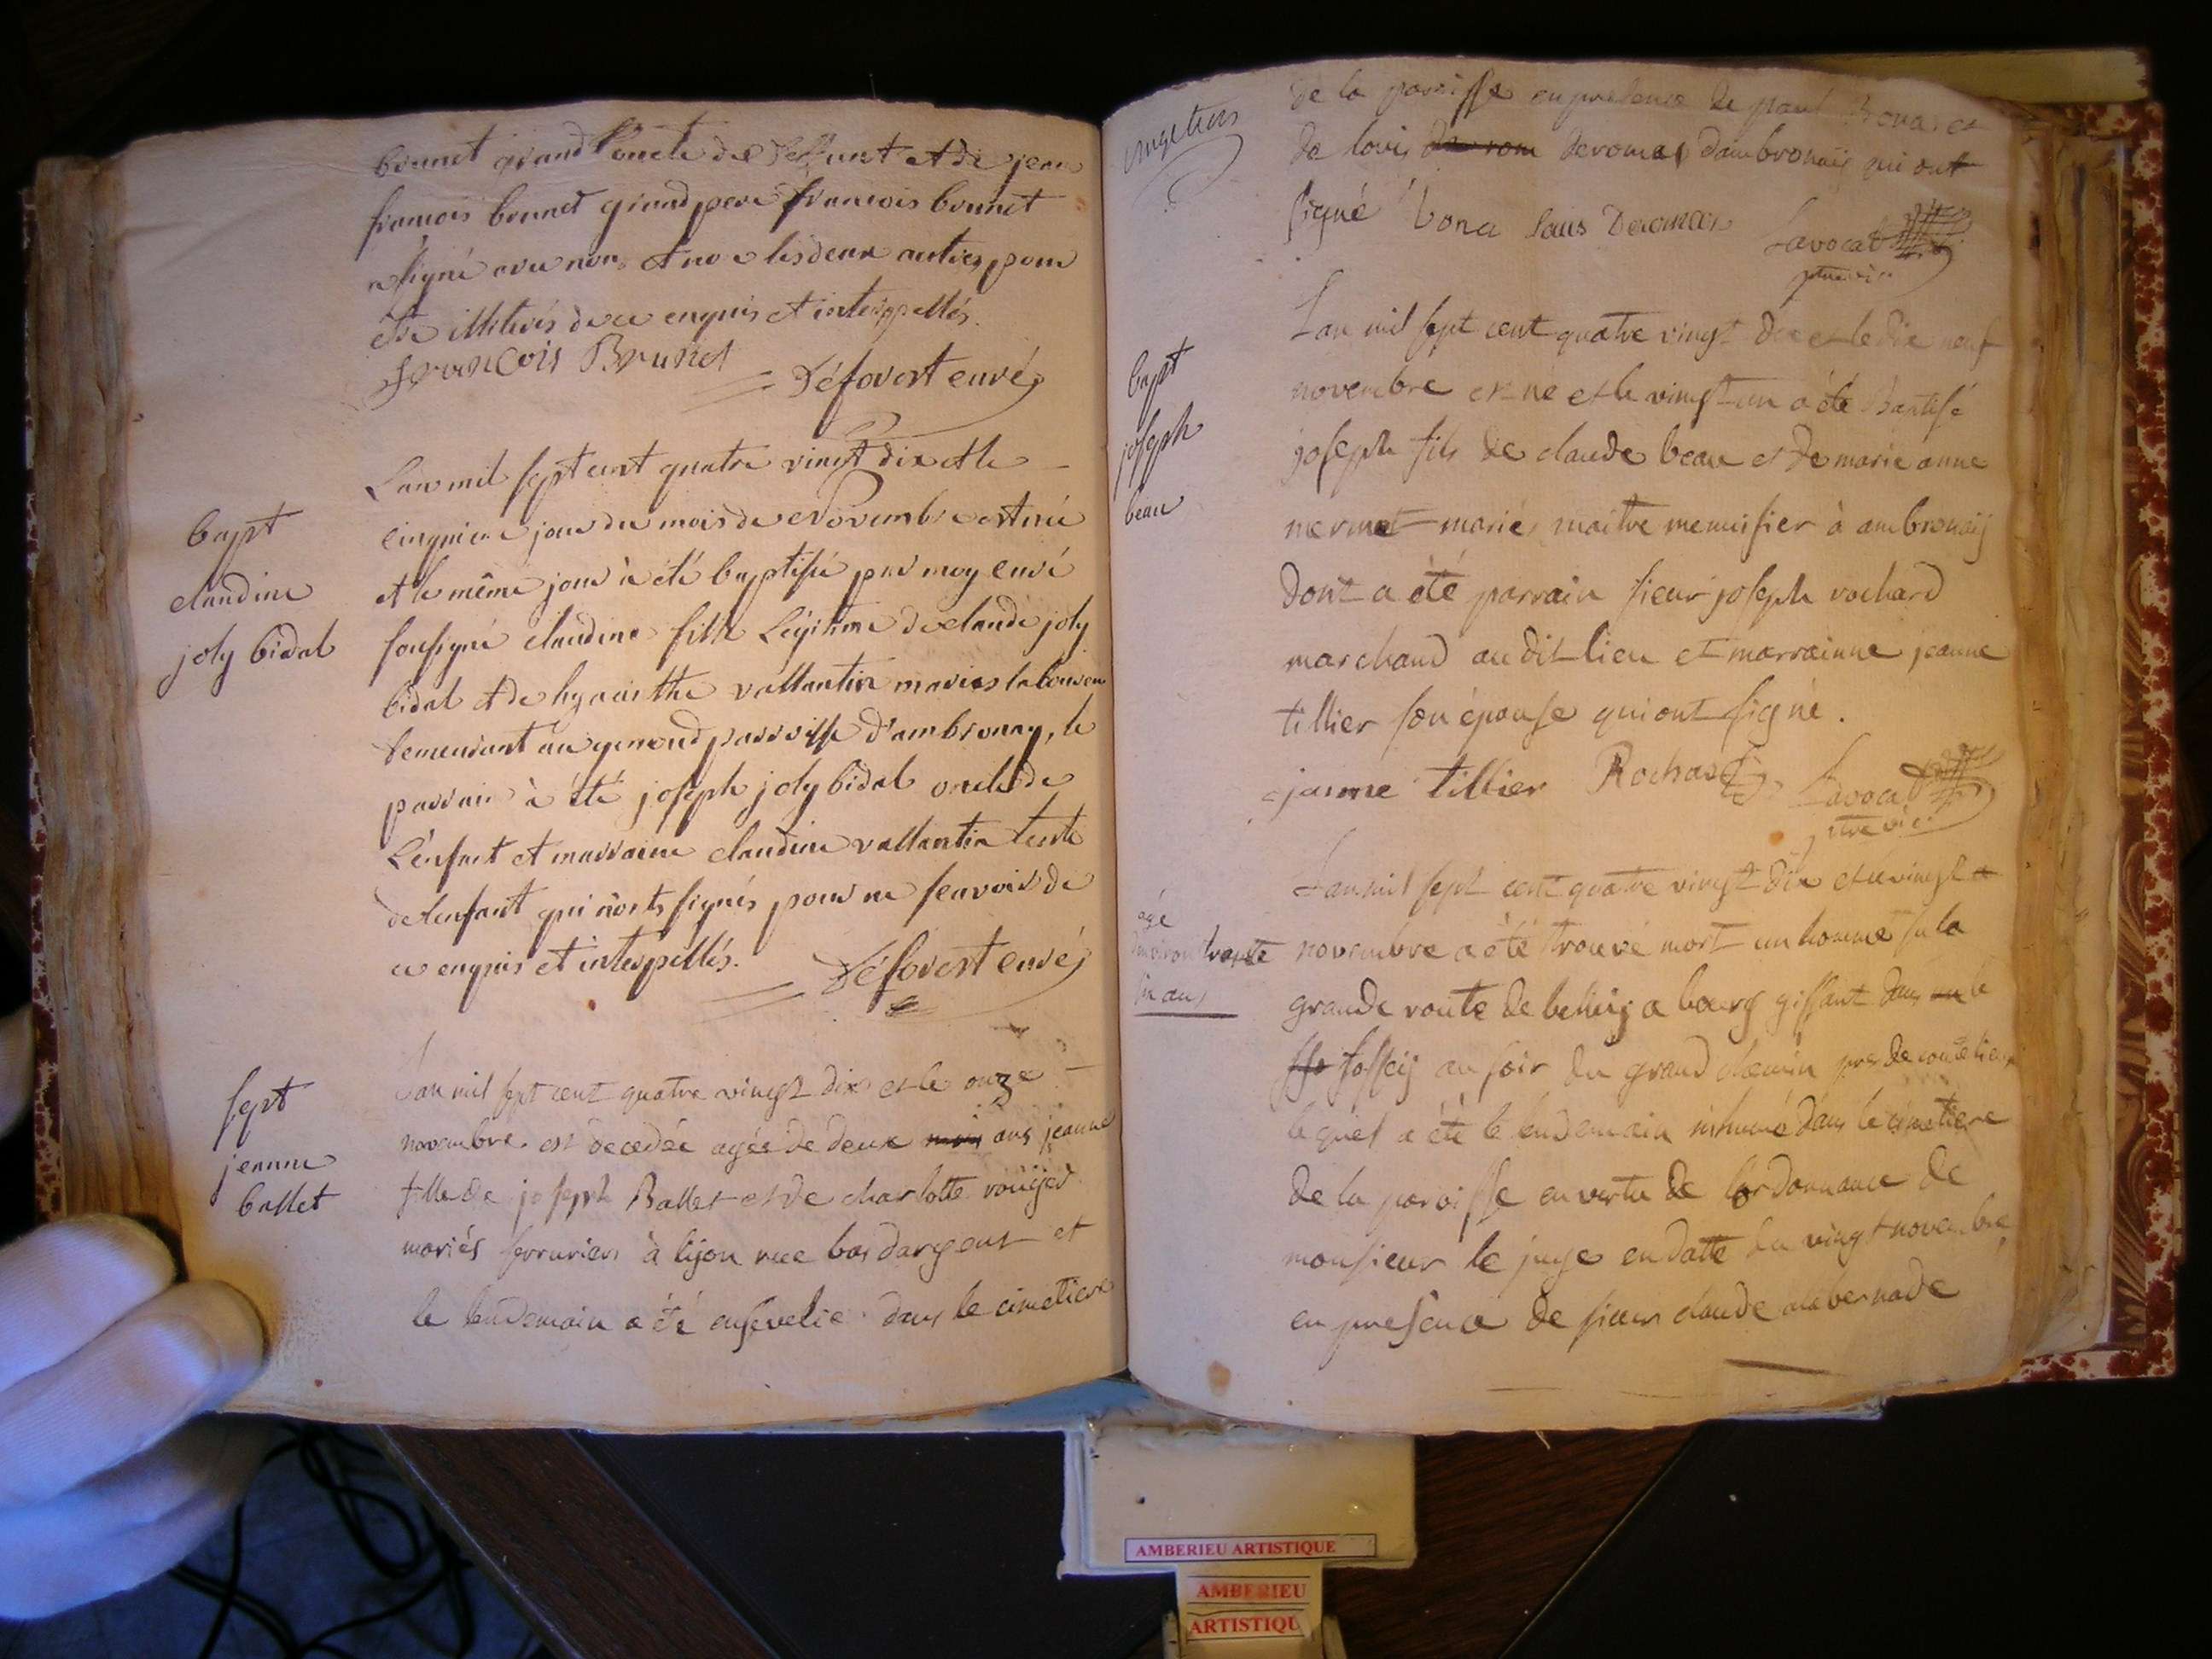 brunet grand oncle du deffunt et de jean
francois brunet grand pere francois brunet
a signé avec nous et non les deux autres pour
etre illiterés de ce enquis et interppellés.
francois Brunet
Déforest curé
L'an mil sept cent quatre vingt dix et le
bapt
claudine
joly bidal
cinquieme jour du mois de Novembre est née
et le même jour à été baptisée par moy curé
sousigné claudine fille Légitime de claude joly
bidal et de hyacinthe vallantin mariés laboureur
demeurant au genoud parroisse d'ambronay, le
parrain à été joseph joly bidal oncle de
L'enfant et marraine claudine vallantin tente
de lenfant qui n'ont signés pour ne scavoir de
ce enquis et interpéllés.
Déforest curé
sept
jeanne
ballet
Lan mil sept cent quatre vingt dix et le onze
novembre est decedée agée de deux mois ans jeanne
fille de joseph Ballet et de charlotte
mariés serruriers à lijon rue bas dargent et
le lendemain a été ensevelie dans le cimetiere
vingt trois
de la paroisse en presence de paul Bona et
de louis de rom deromas dambronaij qui ont
signé bona Louis Deromas Lavocat
ptre vic.
bapt
joseph
beau
Lan mil sept cent quatre vingt dix et le dix neuf
novembre est né et le vingt un a été Baptisé
joseph fils de claude beau et de marie anne
mermet mariés maitre menuisier à ambronaij
Dont a été parrain sieur joseph rochard
marchand audit lieu et marrainne jeanne
tillier son épouse qui ont signé.
jeanne tillier Rochard Lavocat
ptre vic.
agé
environ trente
six ans
Lan mil sept cent quatre vingt dix et le vingt
novembre a été trouvé mort un homme su la
grande route de belleij a bourg gissant dans un le
fosseij au soir du grand chemin pres de
lequel a été le lendemain inhumé dans le cimetiere
de la paroisse en vertu de lordonnance de
monsieur le juge en datte du vingt novembre
en presence de sieur claude alabernade
AMBERIEU ARTISTIQUE
AMBERIEU
ARTISTIQU